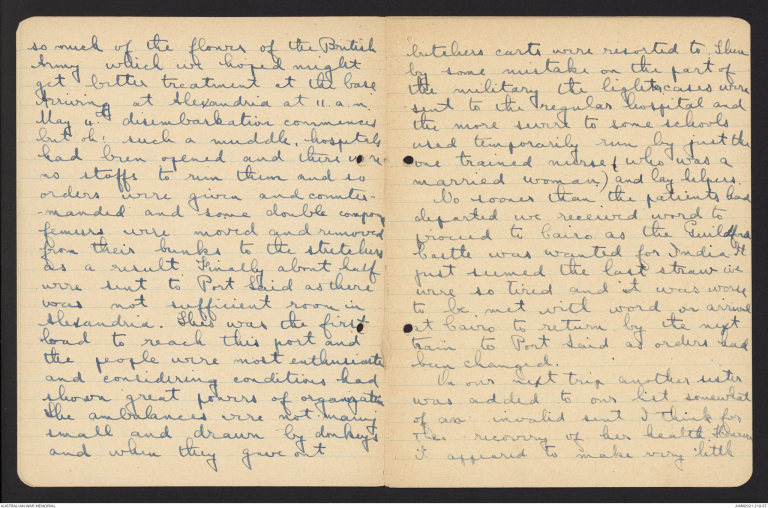 so much of the flower of the British
Army which we hoped might
get better treatment at the base
Arriving at Alexandria at 11. a.m.
May 4th disembarkation commences
but oh! such a muddle, hospitals
had been opened and there were
no staffs to run them and so
orders were given and counter-
-manded and some double compound
femurs were moved and removed
from their bunks to the stretchers
as a result. Finally about half
were sent to Port Said as there
was not sufficient room in
Alexandria. This was the first
load to reach this port and
the people were most enthusiastic
and considering conditions had
shown great powers of organization
The ambulances were not many
small and drawn by donkeys
and when they gave out
butchers carts were resorted to. Then
by some mistake on the part of
the military the light cases were
sent to the regular hospital and
the more severe to some schools
used temporarily run by just the
one trained nurse, (who was a
married woman) and lay helpers.
No sooner than the patients had
departed we received word to
proceed to Cairo as the Guildford
Castle was wanted for India. It
just seemed the last straw we
were so tired and it was worse
to be met with word on arrival
at Cairo to return by the next
train to Port Said as orders had
been changed.
In our next trip another sister
was added to our list somewhat
of an invalid sent I think for
recovery of her health. However
it appeared to make very little
AUSTRALIAN WAR MEMORIAL